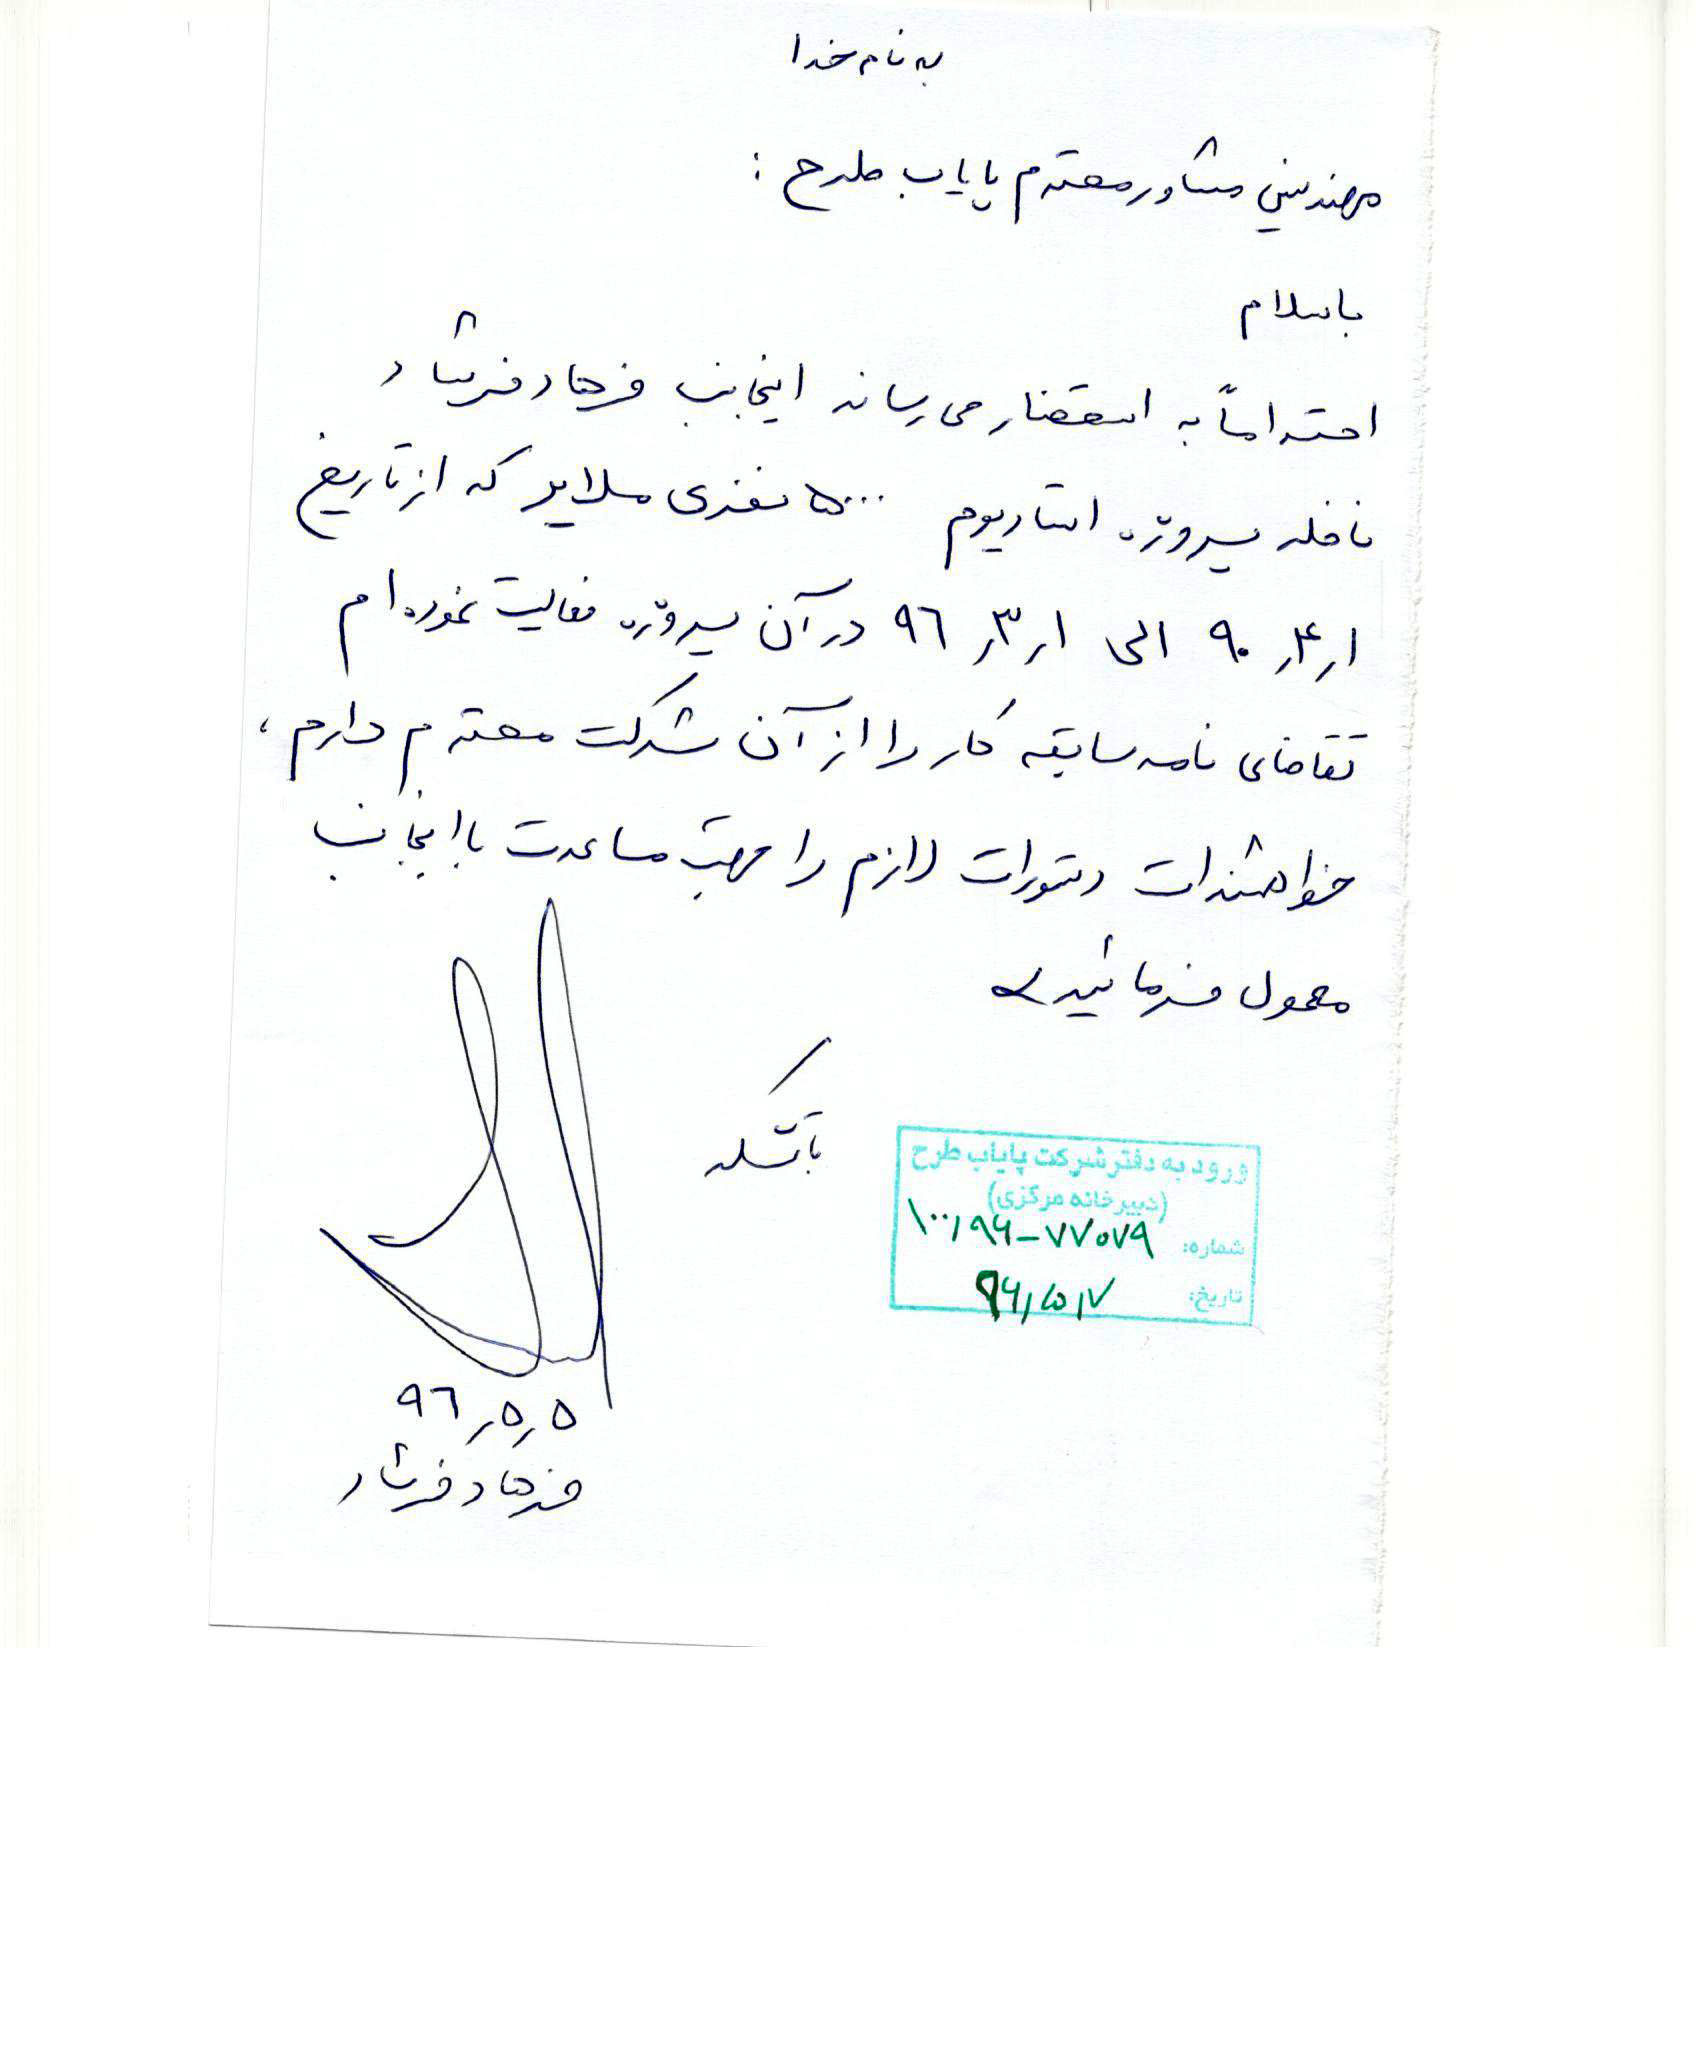 به نام خدا
مهندسین مشاور محترم پایاب طرح :
باسلام
احتراماً به استحضار می رساند اینجانب فرهاد فرشاد
ناظر پروژه استادیوم ۵۰۰۰ نفری ملایر که از تاریخ
۱ر۴ر۹۰ الی ۱ر۳ر۹۶ در آن پروژه فعالیت نموده ام
تقاضای نامه سابقه کار را از آن شرکت محترم دارم ،
خواهشمند است دستورات لازم را جهت مساعدت با اینجانب
معمول فرمائید
باتشکر
ورود به دفتر شرکت پایاب طرح
(دبیرخانه مرکزی)
شماره: ۱۰۰٫۹۶-۷۷۰۷۹
تاریخ: ۹۶٫۵٫۷
۵ر۵ر۹۶
فرهاد فرشاد